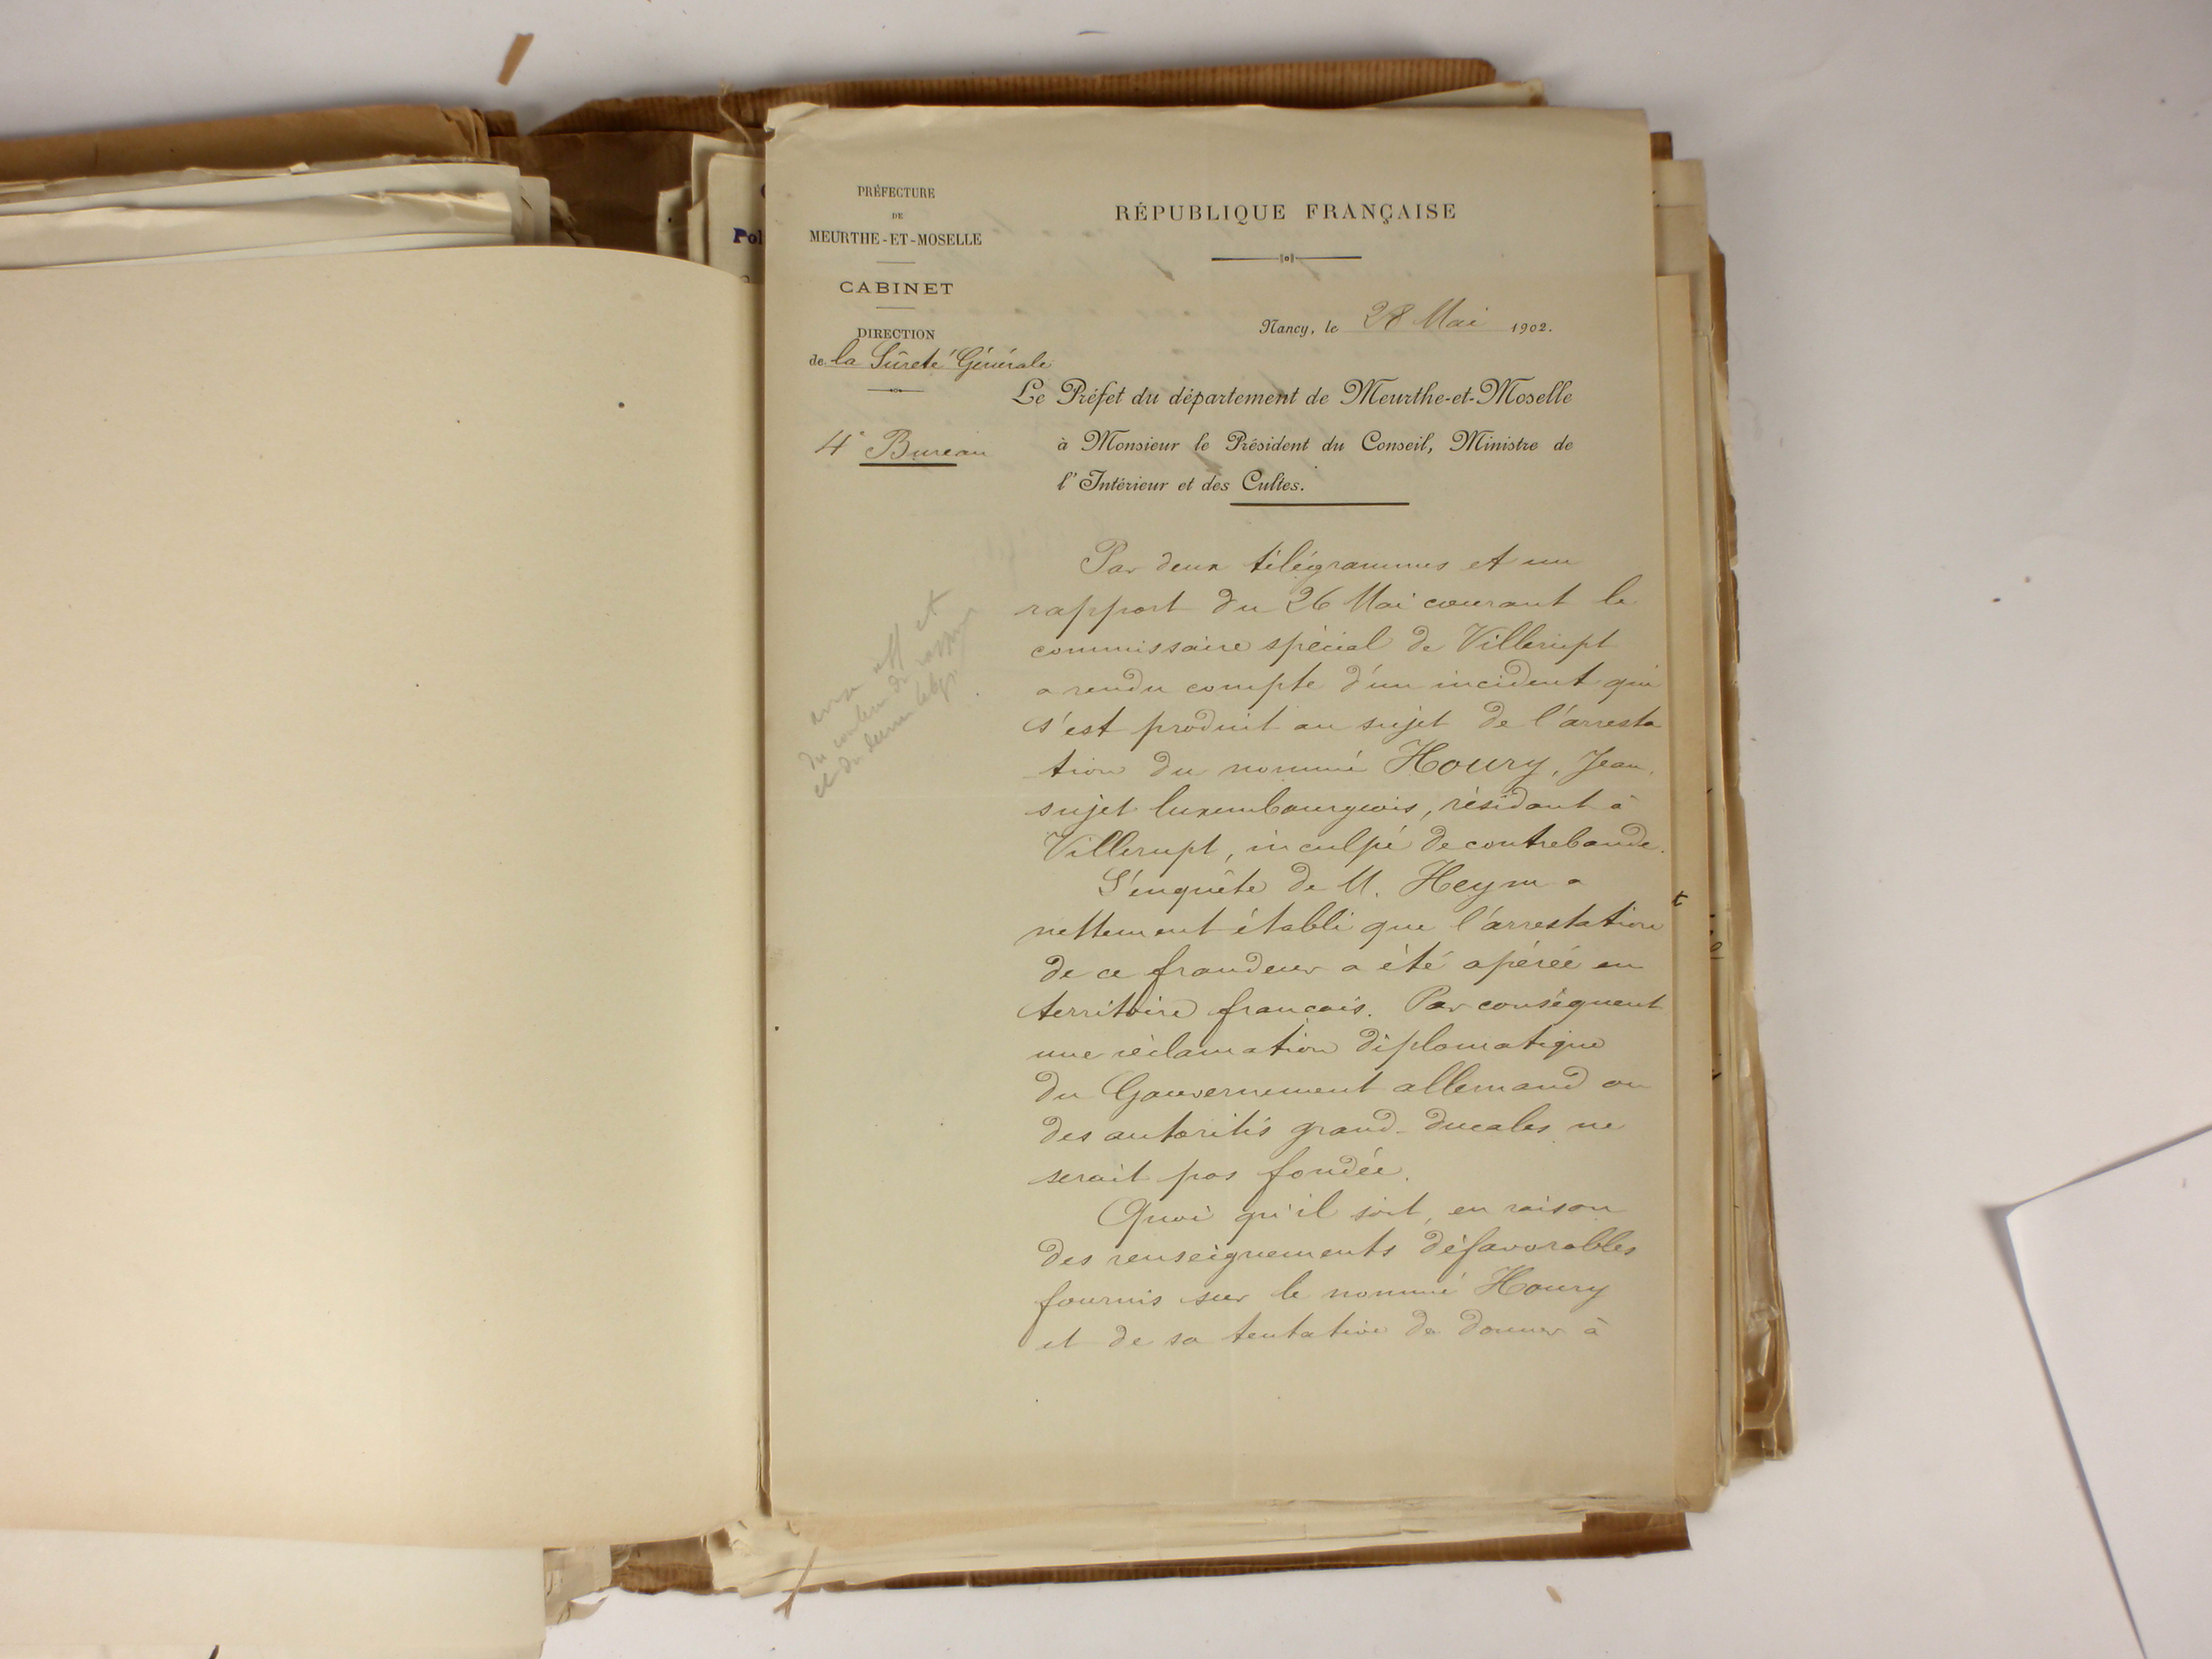 PRÉFECTURE
DE
MEURTHE-ET-MOSELLE
CABINET
DIRECTION
de la Sûreté Générale
4e Bureau
RÉPUBLIQUE FRANÇAISE
Nancy, le 28 Mai 1902.
Le Préfet du département de Meurthe-et-Moselle
à Monsieur le Président du Conseil, Ministre de
l'Intérieur et des Cultes.
Par deux télégrammes et un
rapport du 26 Mai courant le
commissaire spécial de Villerupt
a rendu compte d'un incident qui
s'est produit au sujet de l'arresta
tion du nommé Houry, Jean,
sujet luxembourgeois, résidant à
Villerupt, inculpé de contrebande.
L'enquête de M. Heym a
nettement établi que l'arrestation
de ce fraudeur a été opérée en
territoire français. Par conséquent
une réclamation diplomatique
du Gouvernement allemand ou
des autorités grand-ducales ne
serait pas fondée.
Quoi qu'il soit, en raison
des renseignements défavorables
fournis sur le nommé Houry
et de sa tentative de donner à
Pol